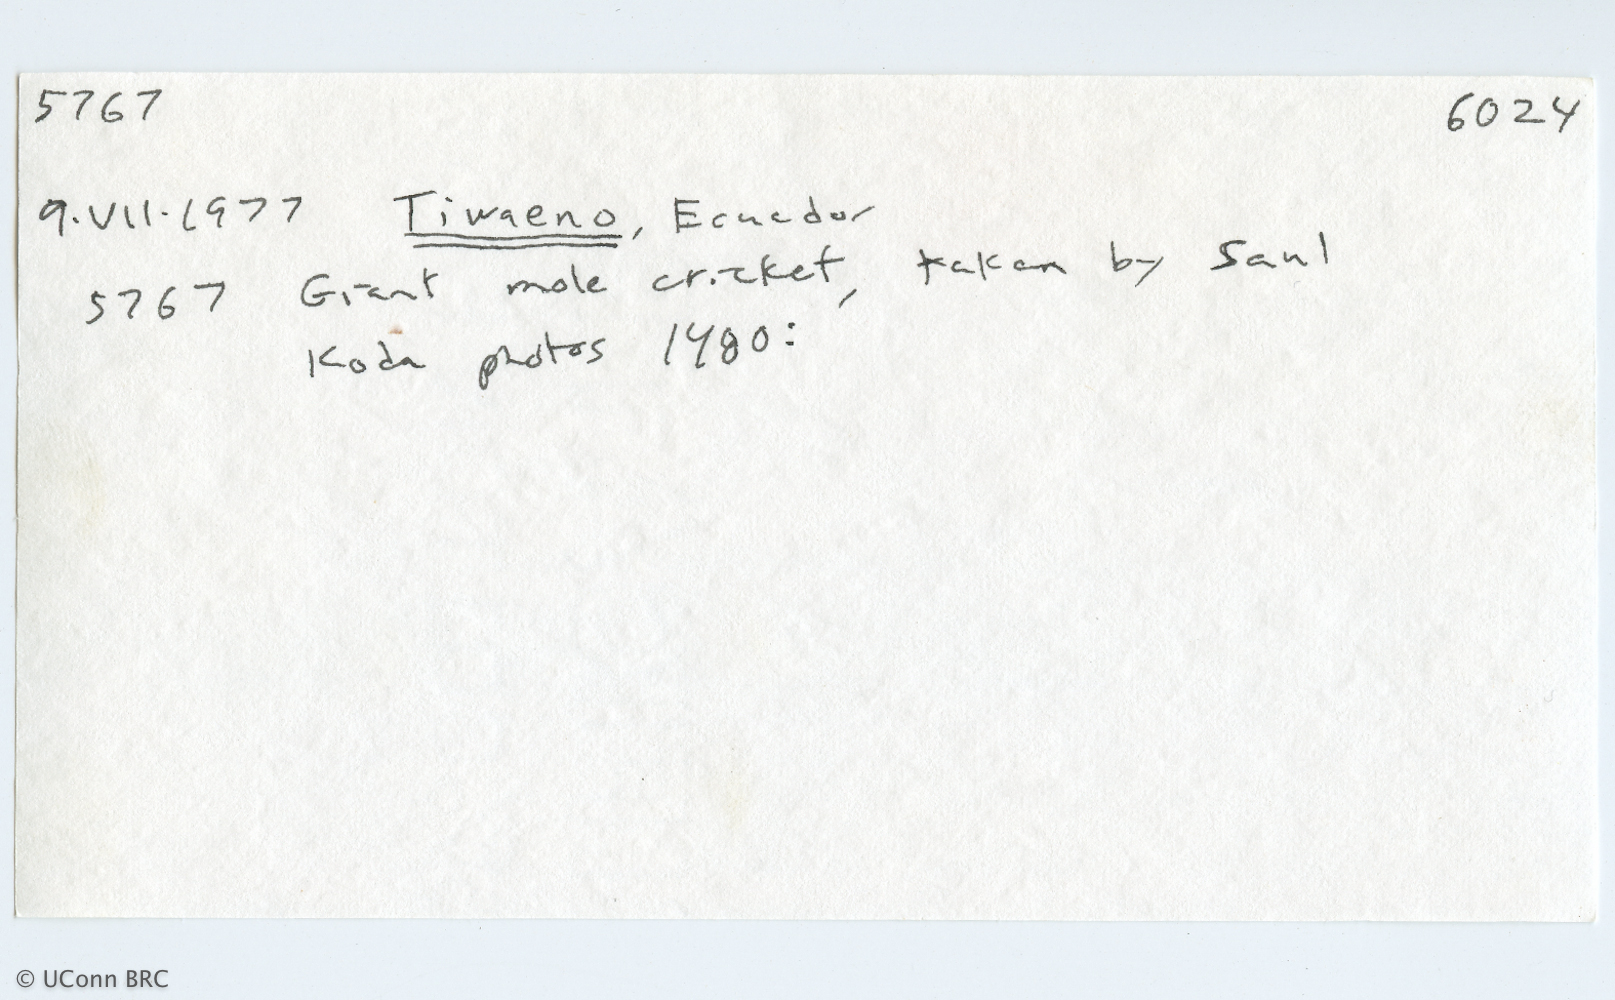 5767 6024
9.VII.1977 Tiwaeno, Ecuador
5767 Giant mole cricket, taken by Saul
Koda photos 1480:
© UConn BRC